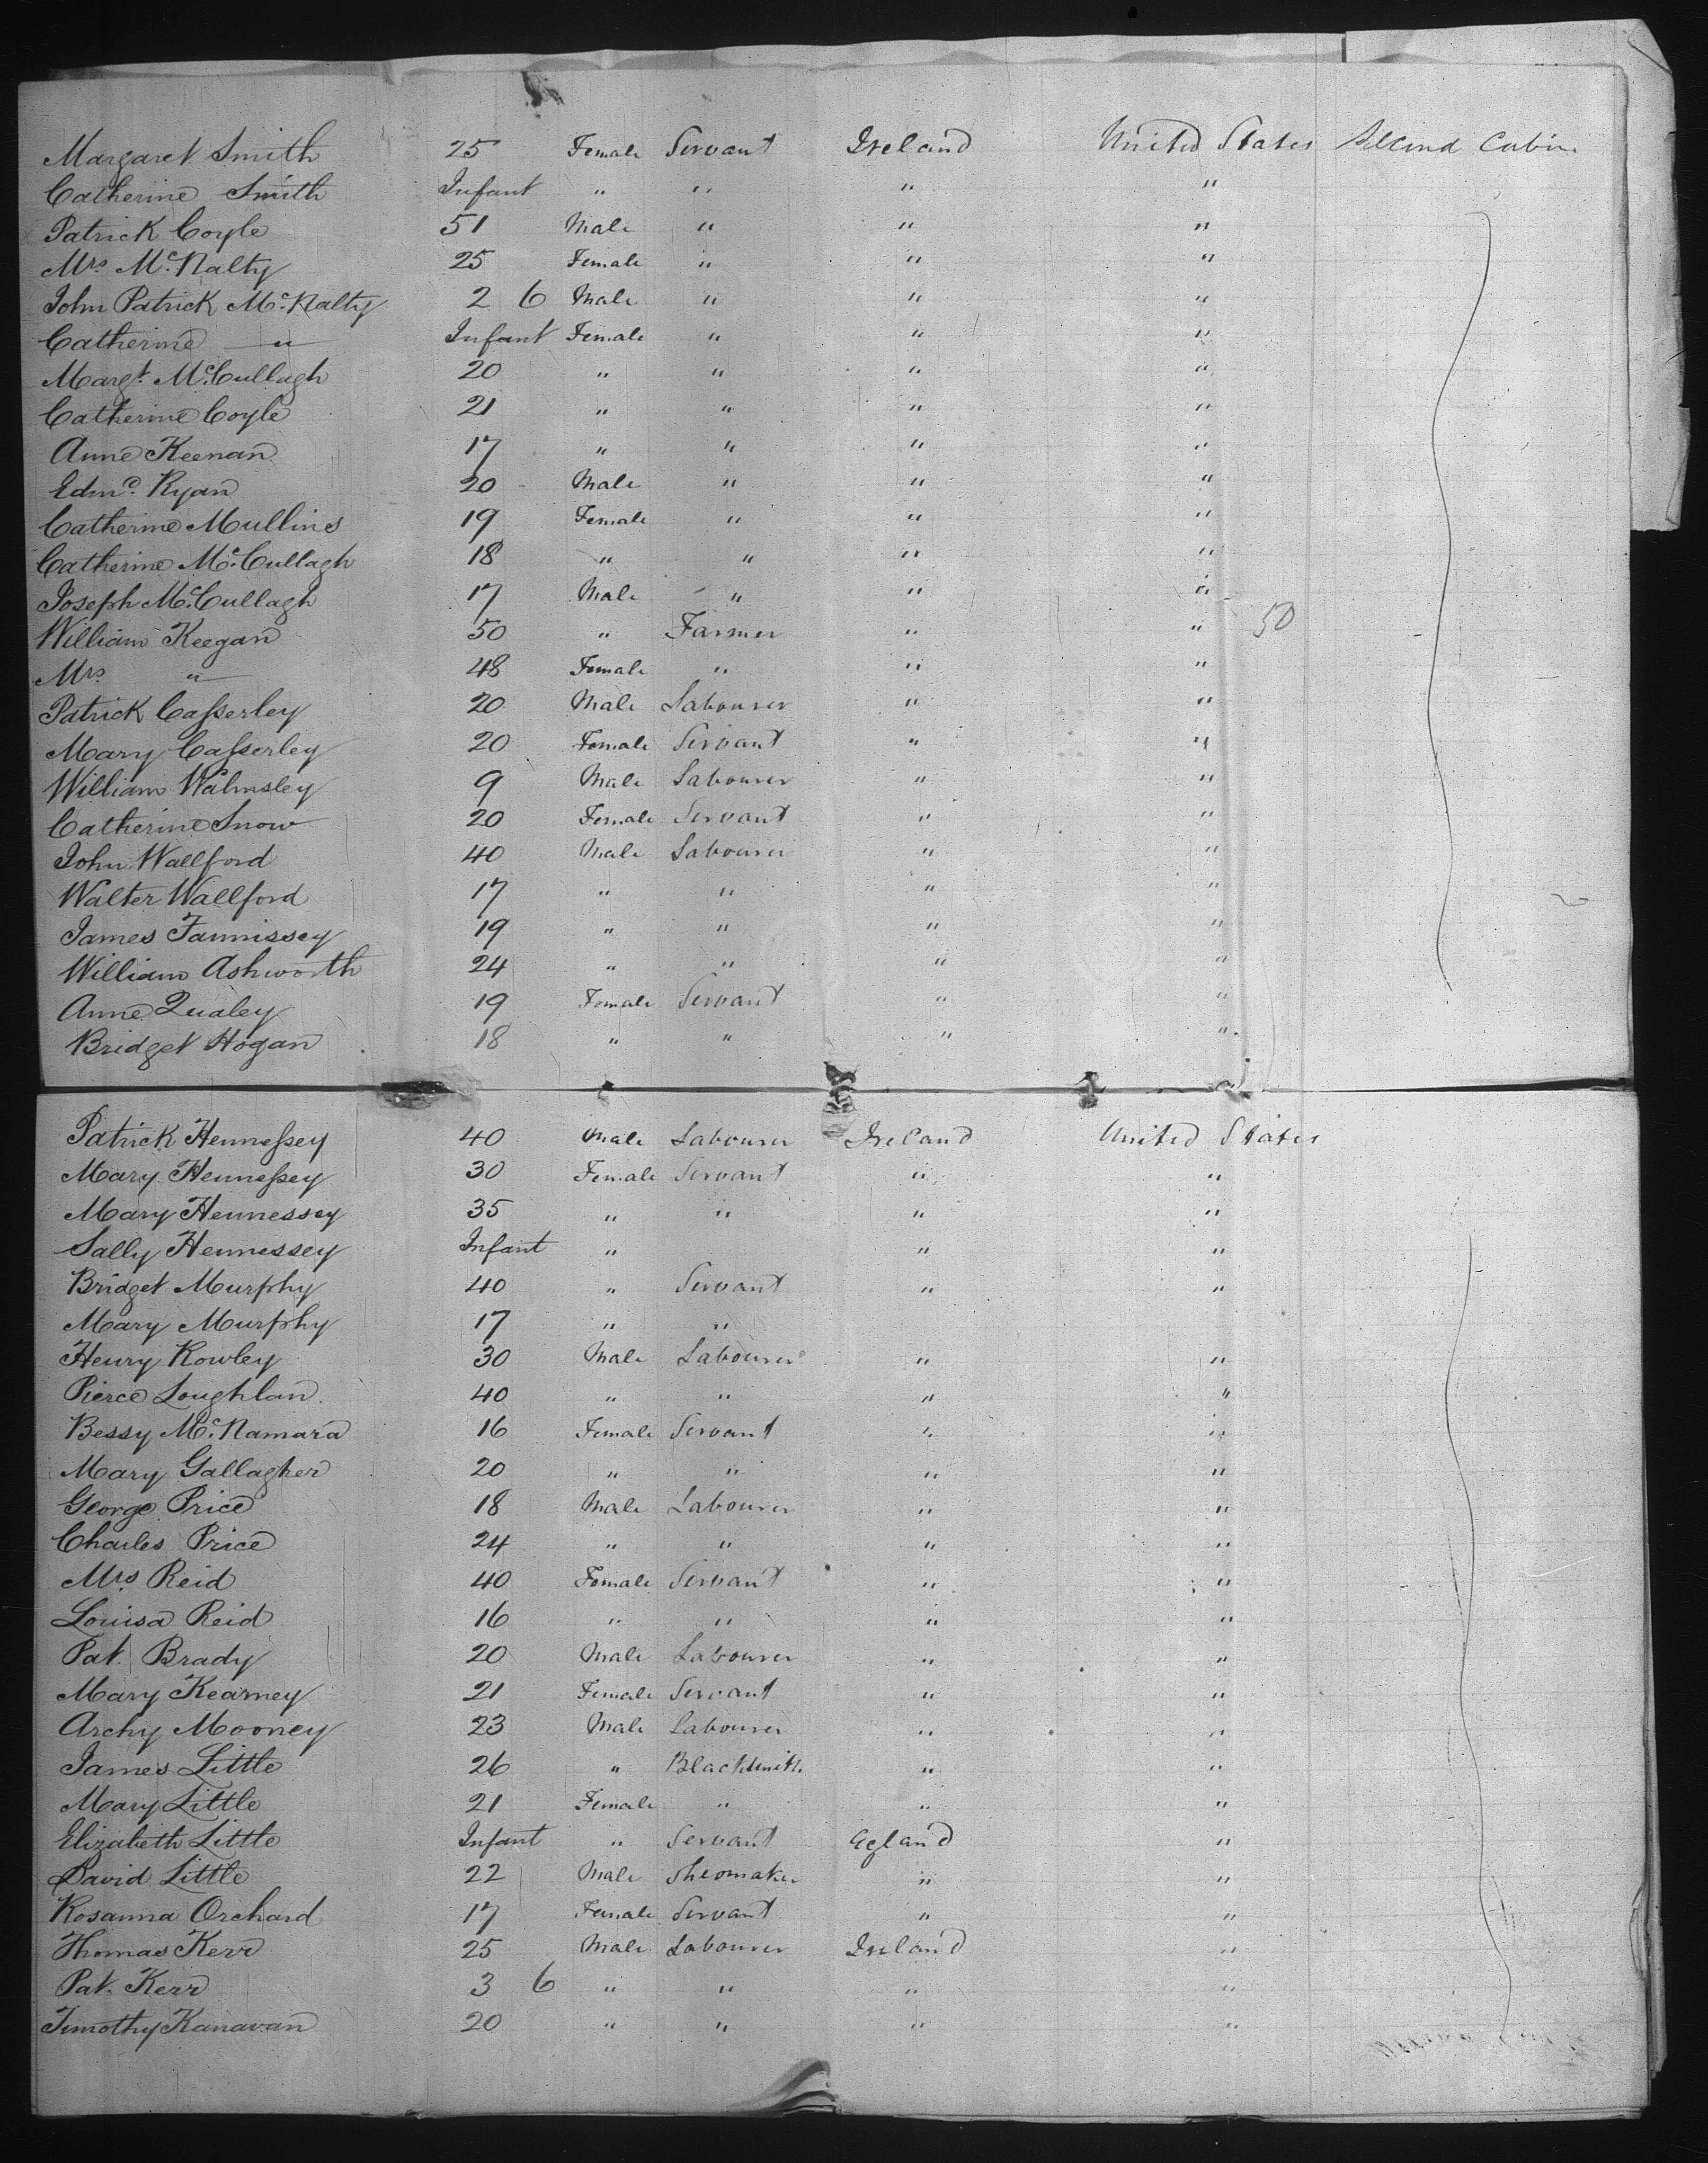 Margaret Smith 25 Female Servant Ireland United States Second Cabin
Catherine Smith Infant " " " "
Patrick Coyle 51 Male " " "
Mrs. McNalty 25 Female " " "
John Patrick McNalty 2 6 Male " " "
Catherine " Infant Female " " "
Margt. McCullagh 20 " " " "
Catherine Coyle 21 " " " "
Anne Keenan 17 " " " "
Edmd. Ryan 20 Male " " "
Catherine Mullins 19 Female " " "
Catherine McCullagh 18 " " " "
Joseph McCullagh 17 Male " " "
William Keegan 50 " Farmer " " 50
Mrs. " 48 Female " " "
Patrick Casserley 20 Male Labourer " "
Mary Casserley 20 Female Servant " "
William Walmsley 9 Male Labourer " "
Catherine Snow 20 Female Servant " "
John Wallford 40 Male Labourer " "
Walter Wallford 17 " " " "
James Fannissey 19 " " " "
William Ashworth 24 " " " "
Anne Qualey 19 Female Servant " "
Bridget Hogan 18 " " " "
Patrick Hennessey 40 Male Labourer Ireland United States
Mary Hennessey 30 Female Servant " "
Mary Hennessey 35 " " " "
Sally Hennessey Infant " " "
Bridget Murphy 40 " Servant " "
Mary Murphy 17 " "
Henry Rowley 30 Male Labourer " "
Pierce Loughlan 40 " " " "
Bessy McNamara 16 Female Servant " "
Mary Gallagher 20 " " " "
George Price 18 Male Labourer " "
Charles Price 24 " " " "
Mrs. Reid 40 Female Servant " "
Louisa Reid 16 " " " "
Pat. Brady 20 Male Labourer " "
Mary Kearney 21 Female Servant " "
Archy Mooney 23 Male Labourer " "
James Little 26 " Blacksmith " "
Mary Little 21 Female " " "
Elizabeth Little Infant " Servant Egland "
David Little 22 Male Sheomaker " "
Rosanna Orchard 17 Female Servant " "
Thomas Kerr 25 Male Labourer Ireland "
Pat. Kerr 3 6 " " " "
Timothy Kanavan 20 " " " "